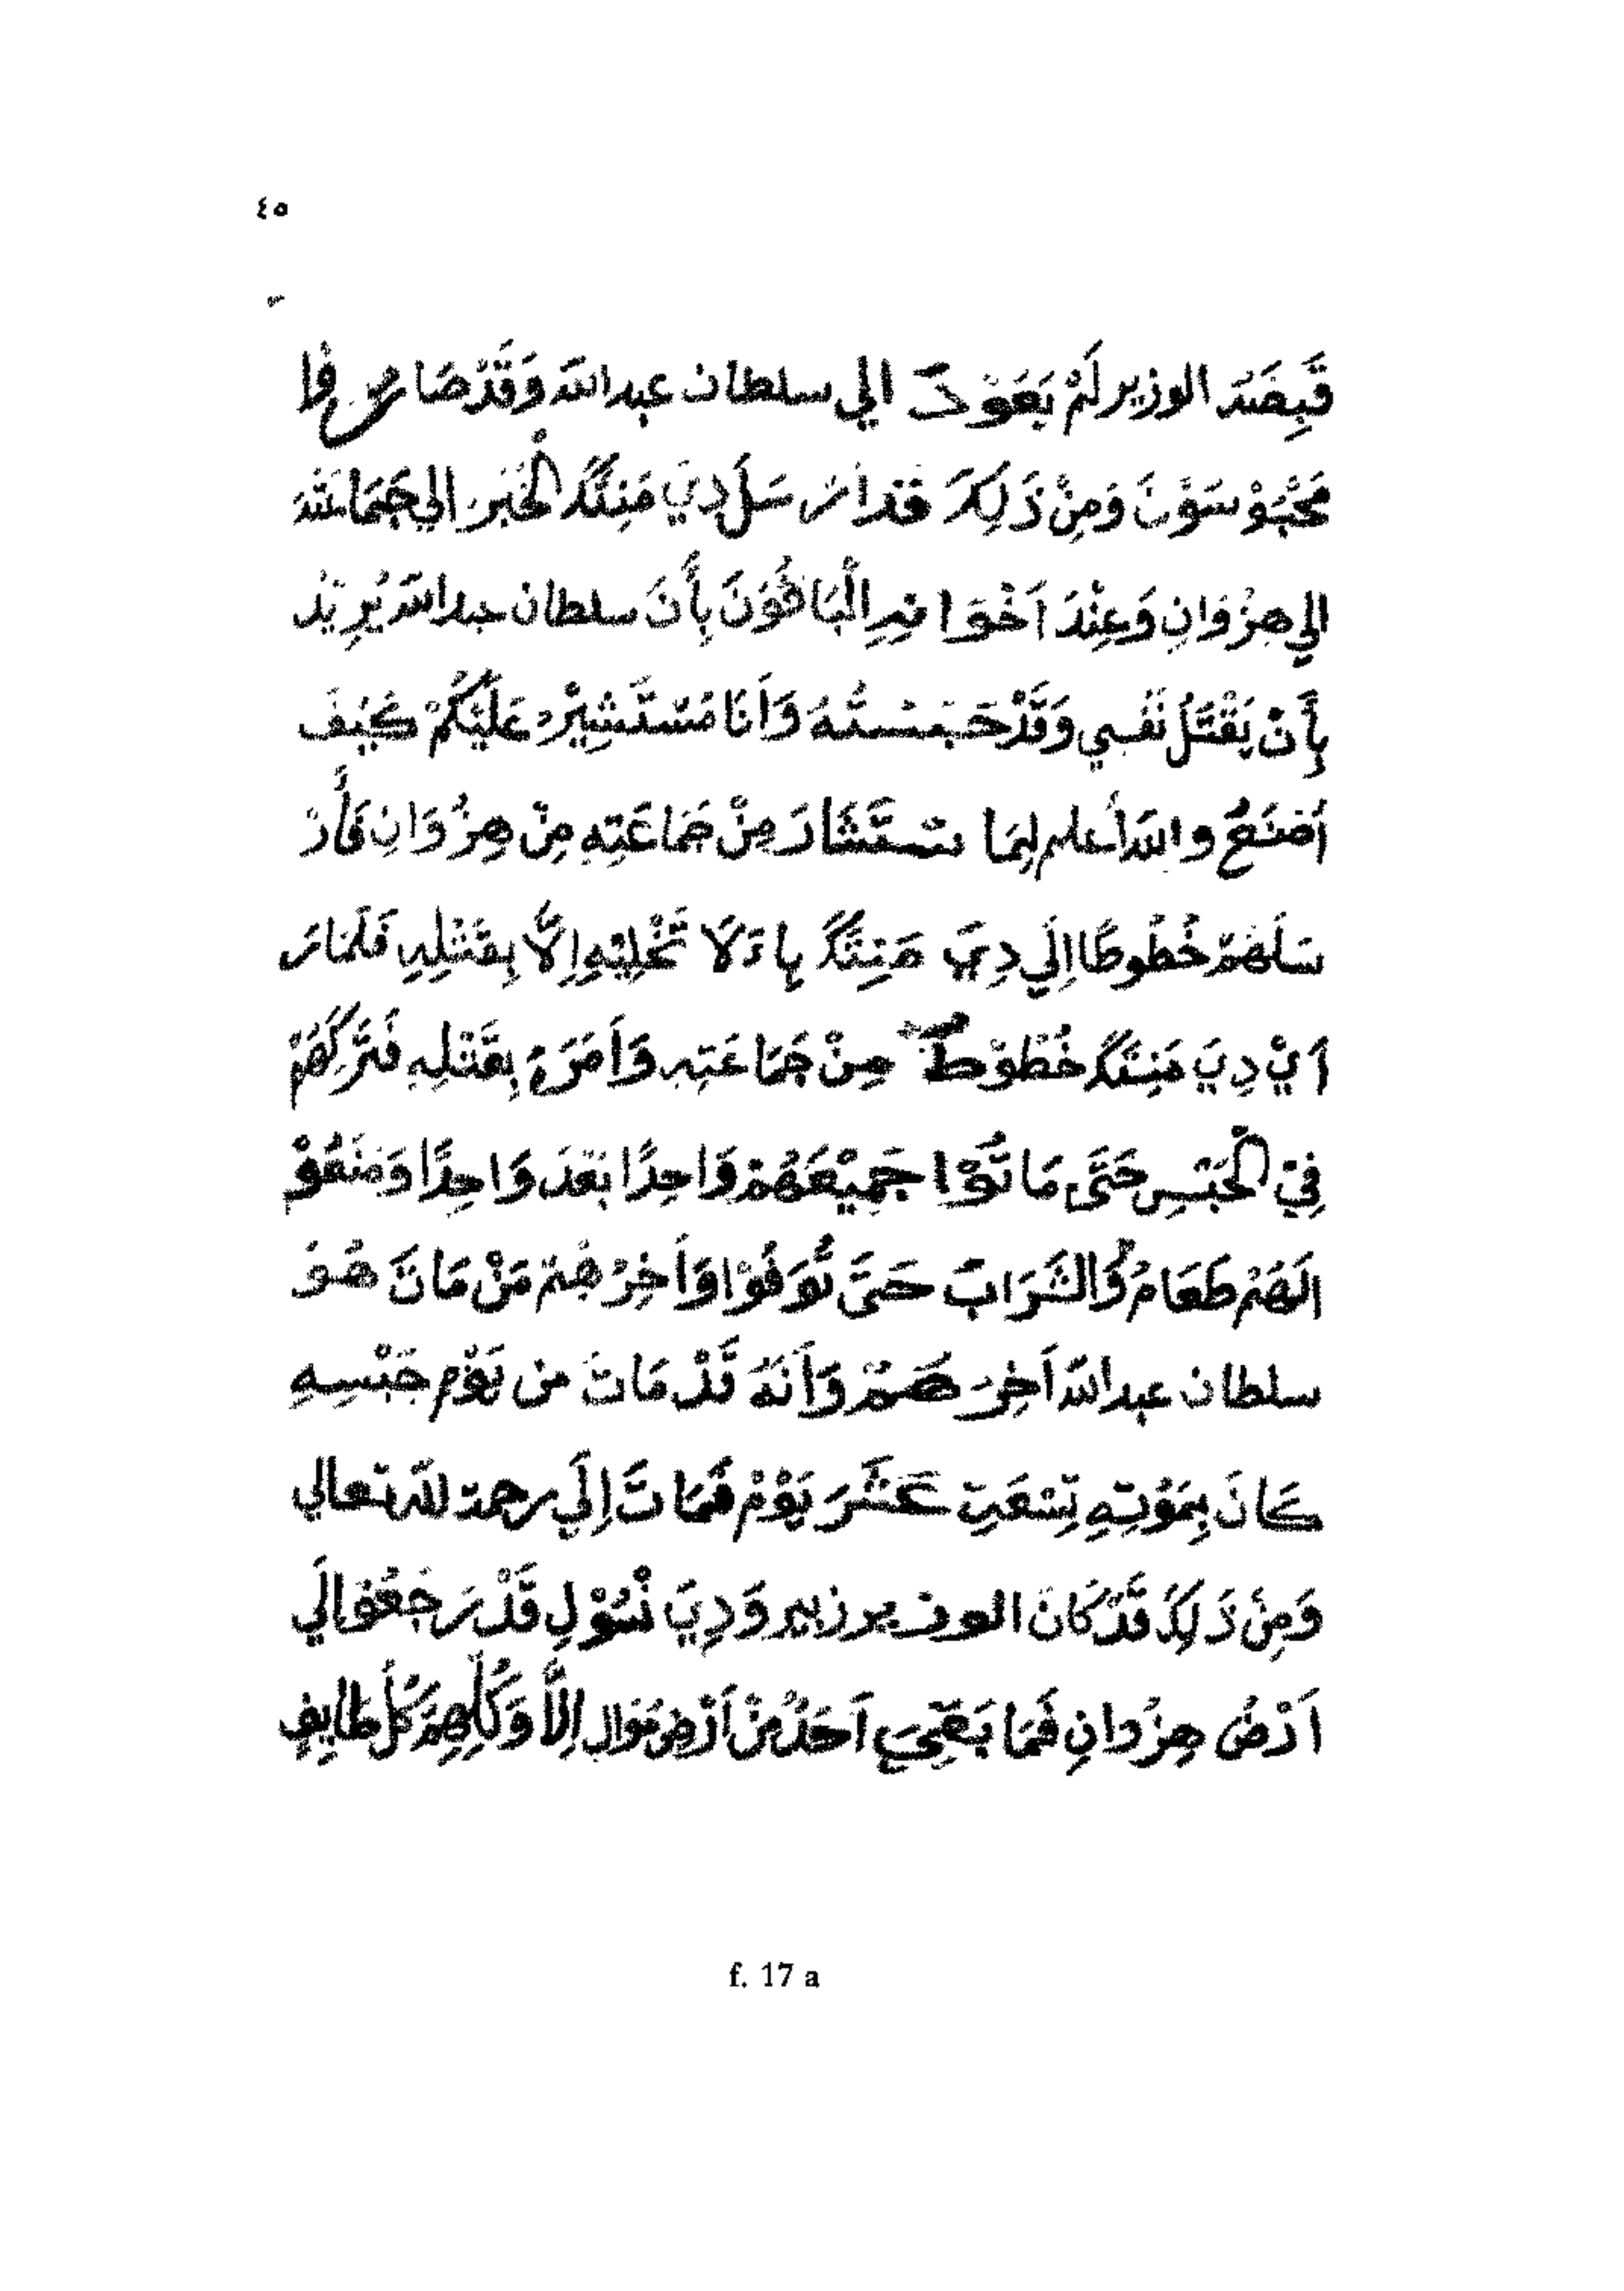 ٤٥
قَبِضَدَ الوزير لَمْ يَعَوْدَ الي سلطان عبدالله وَقَدْ صَارُ وا
مَحْبُوْسَوْنَ وَمِنْ ذَلِكَ فَقَدارْسَلَ دِيَ مَنِنْكَدَ الْخَبَرَ الي جَمَاعَتَهَ
الي هِزْوَانِ وَعِنْدَ اَخْوَانِهِ الْبَاقُوْنَ بِأَنَ سلطان عبدالله يُرِيْدُ
بِأَنْ يَقْتَلَ نَفْسِي وَقَدْ حَبَسْتُهُ وَاَنَا مُسْتَشِيْرُ عَلَيْكُمْ كَيْفَ
اَصْنَعُ والله أعلم لِمَا سْتَشَارَ مِنْ جَمَاعَتِهِ مِنْ هِزْوَانِ فَأَرْ
سَلَهُمْ خُطُوطًا اِلَي دِيَ مَنِنْكَدَ بِاءَلَا تَخْلِيْهِ اِلَّا بِقَتْلِهِ فَلَمَارَ
اَيْ دِيَ مَنِنْكَدَ خُطُوْطَ مِنْ جَمَاعَتِهِ وَاَمَرَهُ بِقَتْلِهِ فَتَرَكَهُمْ
فِيْ الْحَبْسِ حَتَّى مَاتُوْا جَمِيْعَهُمْ وَاحِدًا بَعْدَ وَاحِدًا وَمَنَعُوْ
الَهُمْ طَعَامُ وَالشَرَابَ حَتَىَ تُوَفَوْا وَاَخِرْهُمْ مَنْ مَاتَ هُوَ
سلطان عبدالله اَخِرَ هُمْ وَاَنَهُ قَدْ مَاتَ من يَوْمِ حَبْسِهِ
كَانَ بِمَوْتِهِ تِسْعَتِ عَشَرَ يَوْمْ فَمَاتَ اِلَي رحمة لله تعالي
وَمِنْ ذَلِكَ قَدْ كَانَ الوزير زبير وَدِيَ نْسُوْلِ قَدْ رَجَعُوْا لَي
اَرْضُ هِزْوانِ فَمَا يَبَقِيَ اَحَدُ مِنْ اَرْضِ مُوَال اِلَّا وَكُلِهِمْ كُلَ طايِفٍ
f. 17 a